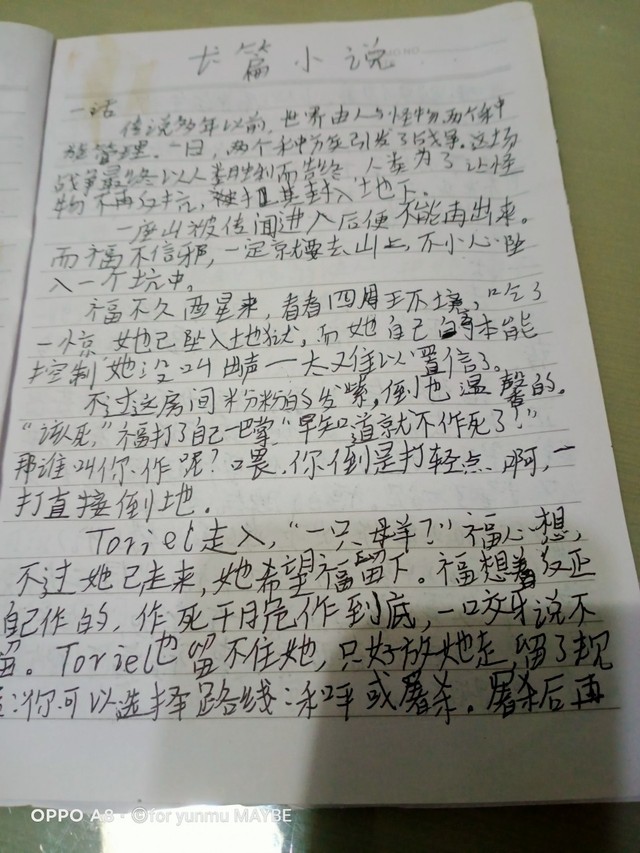 长篇小说
一话
传说多年以前，世界由人与怪物两个种
族管理。一日，两个种族引发了战争。这场
战争最终以人类胜利而告终，人类为了让怪
物不再反抗，被封入地下。
一座山被传闻进入后便不能再出来。
而福不信邪，一定就要去山上，不小心坠
入一个坑中。
福不久西星来，看看四周王不境，吃了
一惊 她已坠入地狱，而她自己的本能
控制她没叫出声一太又住以置信了。
不过这房间米分粉的发紫，倒也温馨的。
“该死，”福打了自己一巴掌“早知道就不作死了！”
那谁叫你作呢？喂，你倒是打轻点啊，一
打直接倒地。
Toriel走入，“一只母羊？”福心想，
不过她已走来，她希望福留下。福想着反正
自己作的，作死干月危作到底，一口咬牙说不
留。Toriel也留不住她，只好放她走，留了规
：你可以选择路线：和平或屠杀。屠杀后再
OPPO A8 · ©for yunmu MAYBE